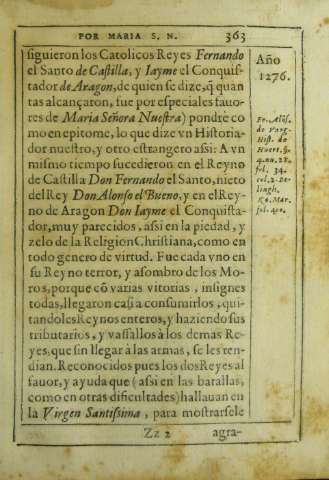 POR MARIA S. N. 363
siguieron los Catolicos Reyes Fernando
el Santo de Castilla, y Iayme el Conquis-
tador de Aragon, de quien se dize, q̃ quan
tas alcançaron, fue por especiales fauo-
res de Maria Señora Nuestra) pondrè co
mo en epitome, lo que dize vn Historia-
dor nuestro, y otro estrangero assi: A vn
mismo tiempo sucedieron en el Reyno
de Castilla Don Fernando el Santo, nieto
del Rey Don Alonso el Bueno, y en el Rey-
no de Aragon Don Iayme el Conquista-
dor, muy parecidos, assi en la piedad, y
zelo de la Religion Christiana, como en
todo genero de virtud. Fue cada vno en
su Reyno terror, y assombro de los Mo-
ros, porque cõ varias vitorias, insignes
todas, llegaron casi a consumirlos, qui-
tandoles Reynos enteros, y haziendo sus
tributarios, y vassallos à los demas Re-
yes, que sin llegar à las armas, se les ren-
dian. Reconocidos pues los dos Reyes al
fauor, y ayuda que (assi en las batallas,
como en otras dificultades) hallauan en
la Virgen Santissima, para mostrarsele
Zz 2 agra-
Año
1276.
Fr. Alõs.
de Varg.
Hist. de
Huert. §.
4. nu. 28.
fol. 34.
col. 2.
fol. 412.